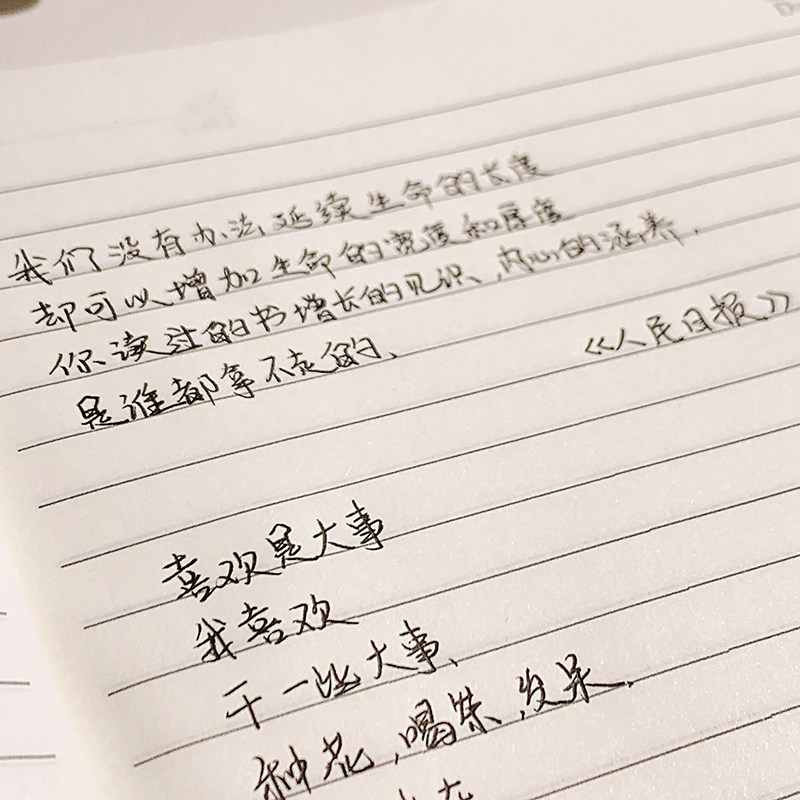 我们没有办法延续生命的长度
却可以增加生命的宽度和厚度
你读过的书增长的见识、内心的涵养，
是谁都拿不走的、
《人民日报》
喜欢是大事
我喜欢
干一些大事、
种花，喝茶，发呆．